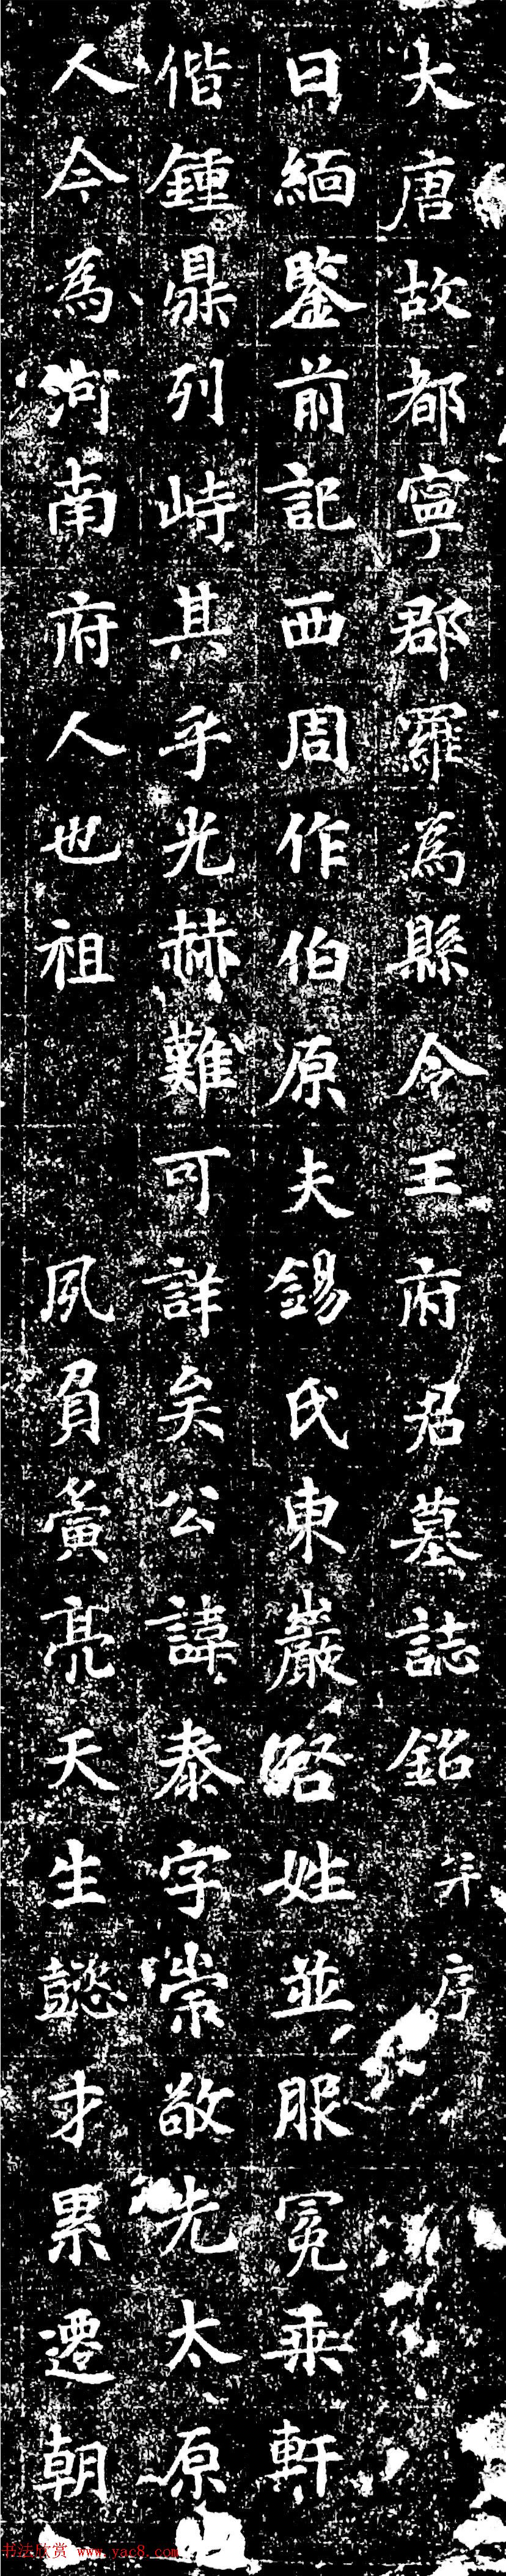 大唐故都寧郡羅為縣令王府君墓誌銘并序
曰緬鑒前記西周作伯原夫錫氏東巖啓姓並服冕乘軒
偕鍾鼎列峙其乎光赫難可詳矣公諱泰字崇敬先太原
人今為河南府人也祖 夙負賓亮天生懿才累遷朝
书法欣赏 www.yac8.com